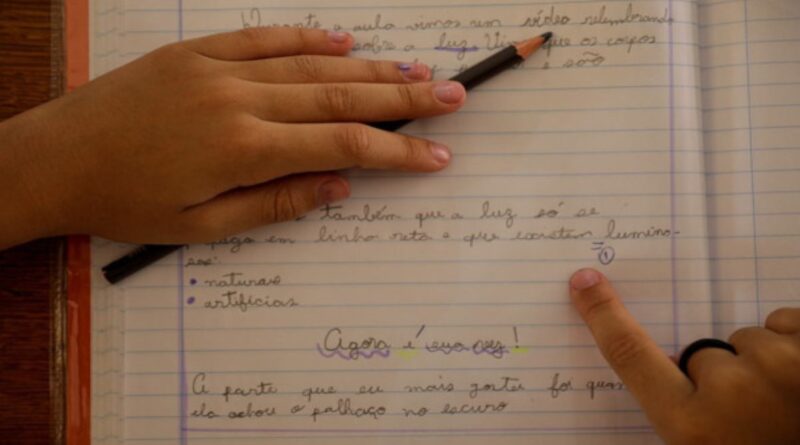 Durante a aula vimos um vídeo relembrando
sobre a luz que os corpos
e são
também que a luz só se
paga em linha reta e que existem lumino-
sos:
①
• naturais
• artifícias
Agora é sua vez!
A parte que eu mais gostei foi quan
ela achou o palhaço no escuro